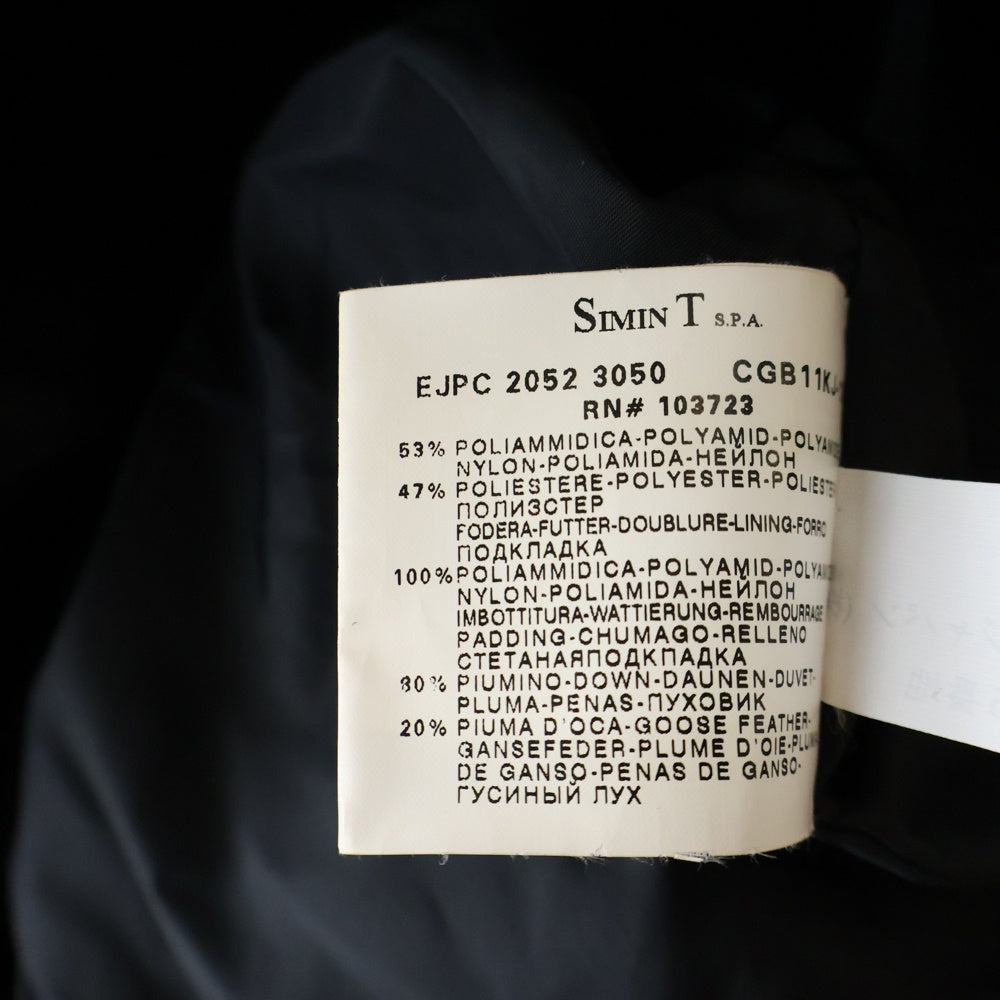 SIMIN T S.P.A.
EJPC 2052 3050 CGB11KJ
RN# 103723
53% POLIAMMIDICA-POLYAMID-POLYAMIDE
NYLON-POLIAMIDA-НЕЙЛОН
47% POLIESTERE-POLYESTER-POLIESTE
ПОЛИЗСТЕР
FODERA-FUTTER-DOUBLURE-LINING-FORRO
ПОДКЛАДКА
100% POLIAMMIDICA-POLYAMID-POLYAMIDE
NYLON-POLIAMIDA-НЕЙЛОН
IMBOTTITURA-WATTIERUNG-REMBOURRAGE
PADDING-CHUMAGO-RELLENO
СТЕТАНАЯПОДКПАДКА
80% PIUMINO-DOWN-DAUNEN-DUVET-
PLUMA-PENAS-ПУХОВИК
20% PIUMA D'OCA-GOOSE FEATHER-
GANSEFEDER-PLUME D'OIE-PLUMA
DE GANSO-PENAS DE GANSO-
ГУСИНЫЙ ЛУХ